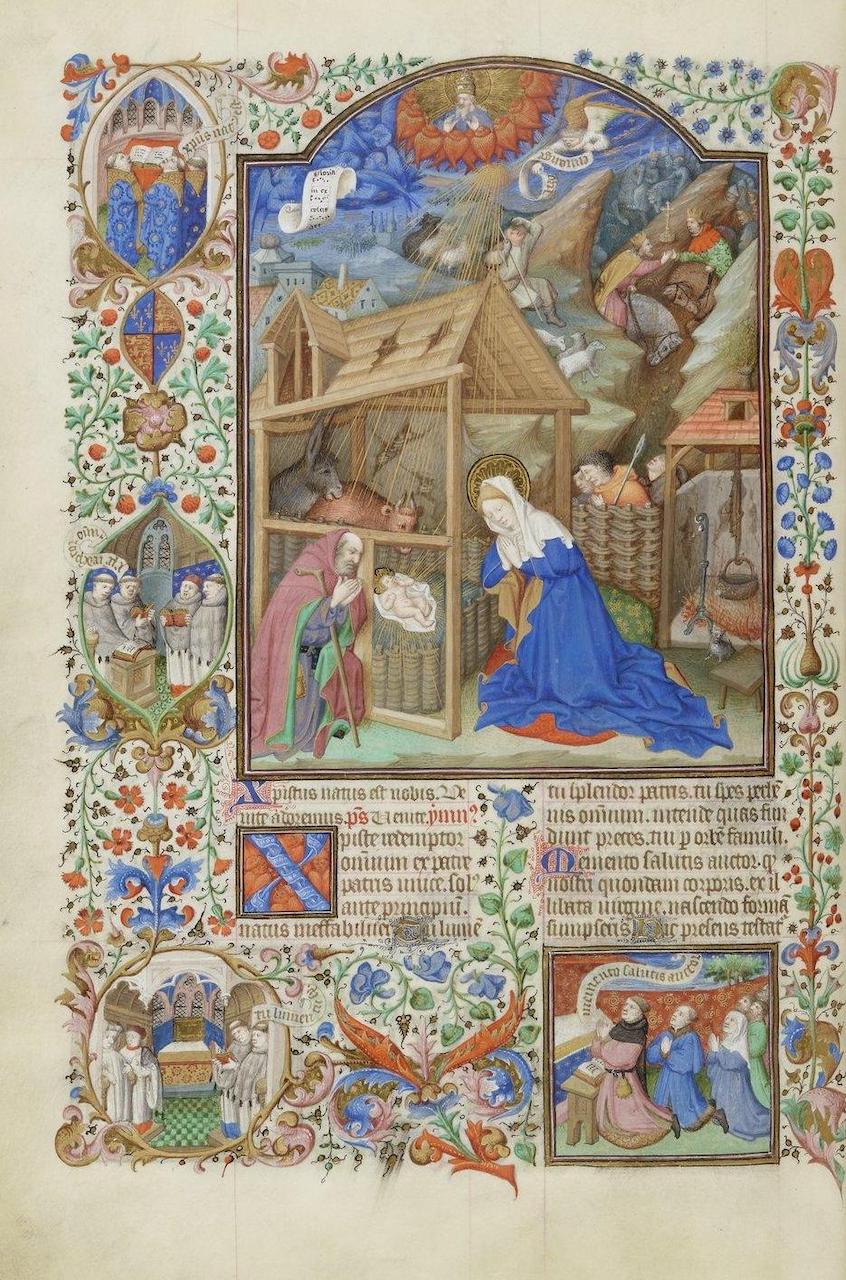 gloria
in ex
celsis
Gloria
Xpistus natus est nobis. Ve
nite adoremus. ps Venite. ymn
Xpiste redemptor
omnium ex patre
patris unice. sol
ante principiū.
natus ineffabiliter Tu lumē
tu splendor patris. tu spes perhē
nis omnium. intende quas fun
dunt preces. tui p orbē famuli.
Memento salutis auctor. q
nostri quondam corporis. ex il
libata virgine. nascendo formā
sumpseris Hic presens testat
tu lumen
memento salutis auctor